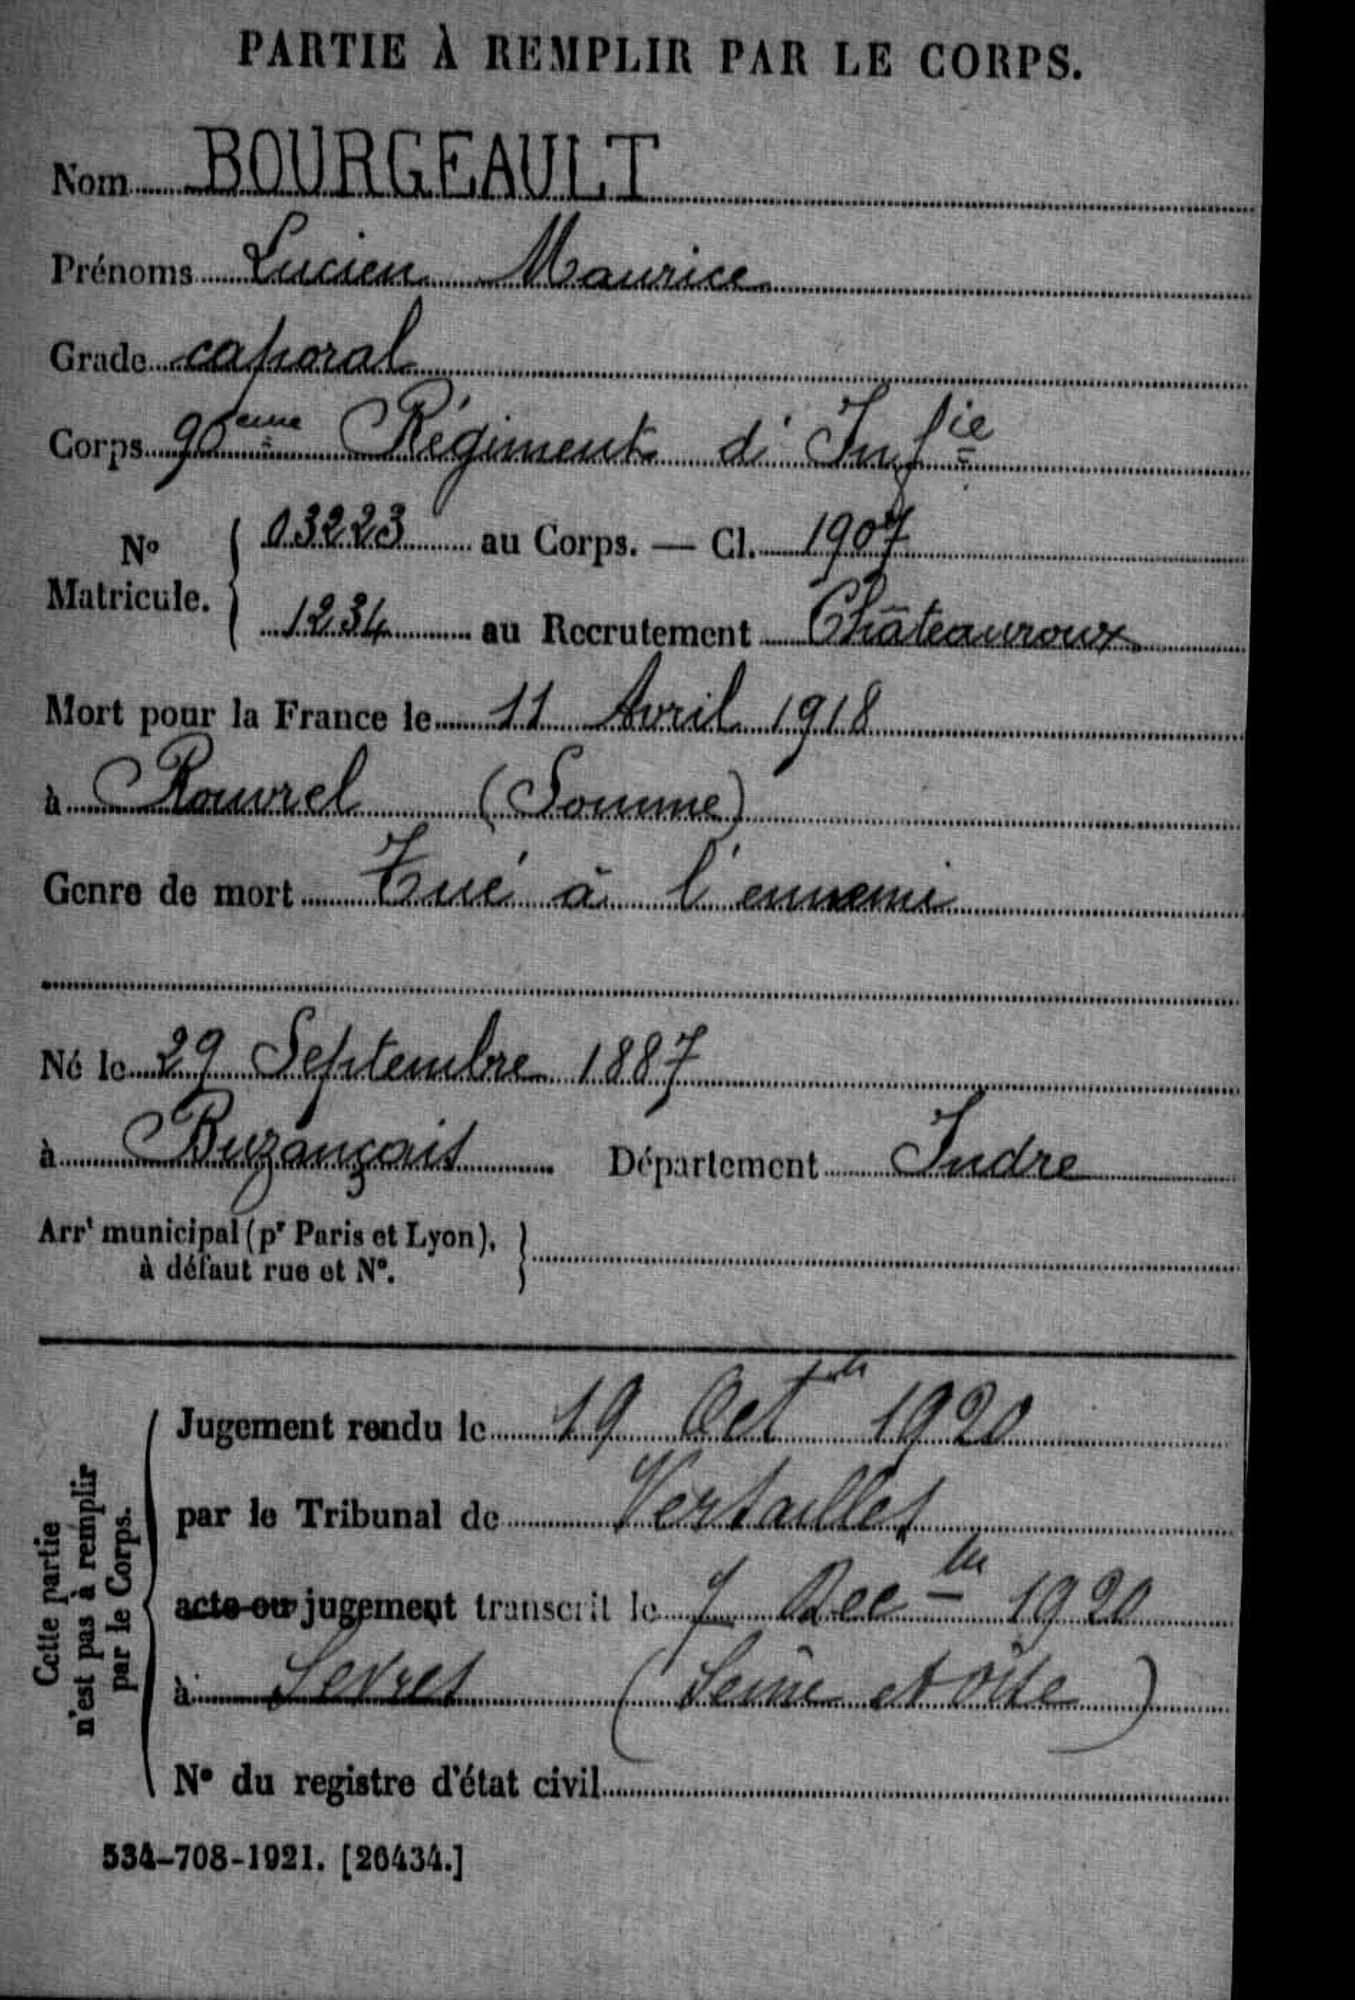 PARTIE À REMPLIR PAR LE CORPS.
Nom BOURGEAULT
Prénoms Lucien Maurice
Grade caporal
Corps 90eme Régiment d'Infie
No Matricule. { 03223 au Corps. — Cl. 1907
1234 au Recrutement Châteauroux
Mort pour la France le 11 Avril 1918
à Rouvrel (Somme)
Genre de mort Tué à l'ennemi
Né le 29 Septembre 1887
à Buzançais Département Indre
Arrt municipal (pr Paris et Lyon),
à défaut rue et No.
Cette partie
n'est pas à remplir
par le Corps.
Jugement rendu le 19 Octbre 1920
par le Tribunal de Versailles
acte ou jugement transcrit le 7 Decbre 1920
à Sevres (Seine et Oise)
No du registre d'état civil
534-708-1921. [26434.]